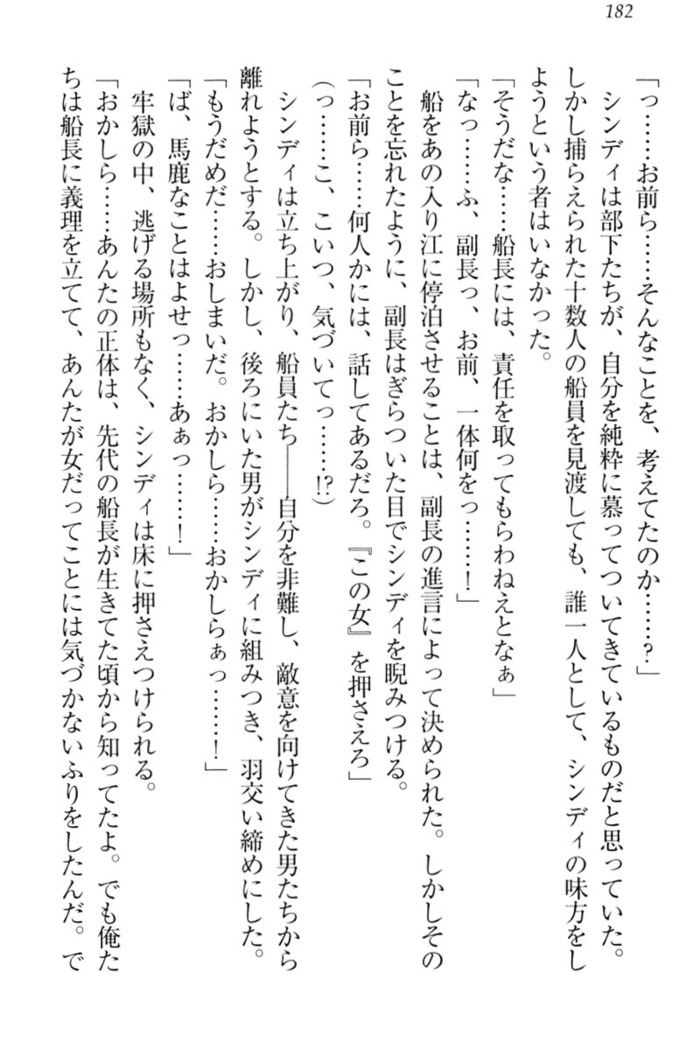 182
「っ……お前ら……そんなことを、考えてたのか……?」
　シンディは部下たちが、自分を純粋に慕ってついてきているものだと思っていた。
しかし捕らえられた十数人の船員を見渡しても、誰一人として、シンディの味方をし
ようという者はいなかった。
「そうだな……船長には、責任を取ってもらわねえとなぁ」
「なっ……ふ、副長っ、お前、一体何をっ……!」
　船をあの入り江に停泊させることは、副長の進言によって決められた。しかしその
ことを忘れたように、副長はぎらついた目でシンディを睨みつける。
「お前ら……何人かには、話してあるだろ。『この女』を押さえろ」
(っ……こ、こいつ、気づいてっ……!?)
　シンディは立ち上がり、船員たち――自分を非難し、敵意を向けてきた男たちから
離れようとする。しかし、後ろにいた男がシンディに組みつき、羽交い締めにした。
「もうだめだ……おしまいだ。おかしら……おかしらぁっ……!」
「ば、馬鹿なことはよせっ……あぁっ……!」
　牢獄の中、逃げる場所もなく、シンディは床に押さえつけられる。
「おかしら……あんたの正体は、先代の船長が生きてた頃から知ってたよ。でも俺た
ちは船長に義理を立てて、あんたが女だってことには気づかないふりをしたんだ。で